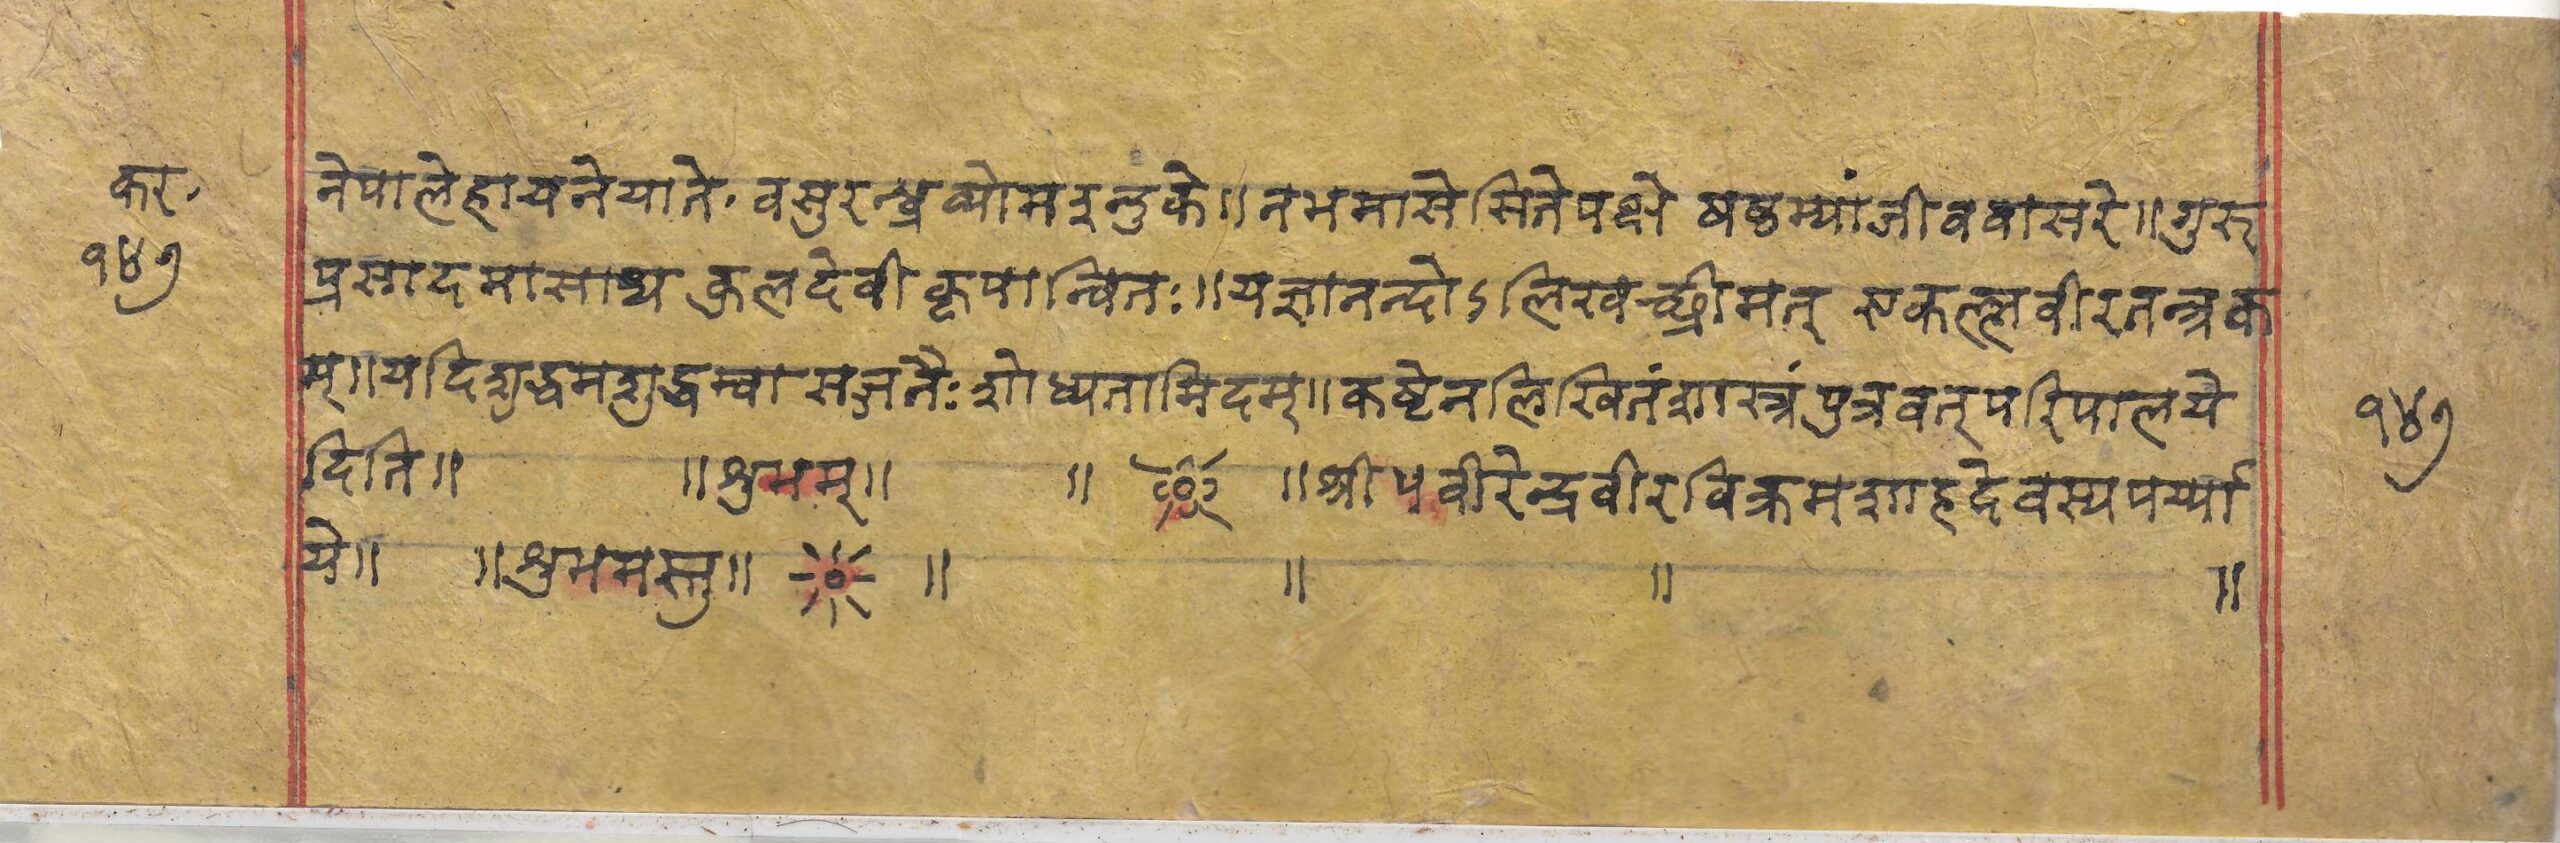 कर.
१४७
नेपालेहायनेयाते. वसुरन्ध्रव्योमरन्दुके॥नभमासेसितेपक्षे षष्ठम्यांजीववासरे॥गुरु
प्रसादमासाद्य कुलदेवीकृपान्वितः॥यज्ञानन्दोऽलिखच्छ्रीमत् एकल्लवीरतन्त्रक
म्॥यदिशुद्धमशुद्धम्वा सज्जनैः शोध्यतामिदम्॥कष्टेनलिखितंशास्त्रंपुत्रवत्परिपालये
दिति॥ ॥शुभम्॥ ॥ ॥श्री५वीरेन्द्रवीरविक्रमशाहदेवस्यपर्य्या
ये॥ ॥शुभमस्तु॥ ॥ ॥ ॥ ॥
१४७